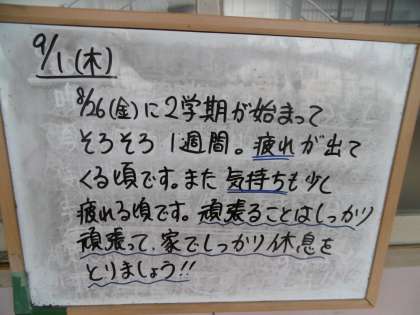 9/1(木)
8/26(金)に2学期が始まって
そろそろ1週間。疲れが出て
くる頃です。また気持ちも少し
疲れる頃です。頑張ることはしっかり
頑張って、家でしっかり休息を
とりましょう!!